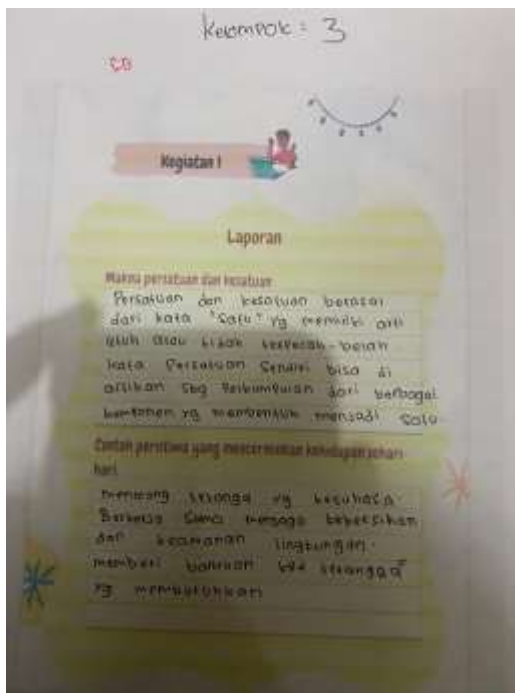 Kelompok : 3
Kegiatan 1
Laporan
Makna persatuan dan kesatuan
Persatuan dan kesatuan berasal
dari kata "Satu" yg memiliki arti
utuh atau tidak terpecah-belah
kata Persatuan Sendiri bisa di
artikan sbg Perkumpulan dari berbagai
komponen yg membentuk menjadi Satu
Contoh peristiwa yang mencerminkan kehidupan sehari-
hari
menolong tetangga yg kesusahan
Bekerja Sama menjaga kebersihan
dan keamanan lingkungan.
memberi bantuan tetangga"
yg membutuhkan